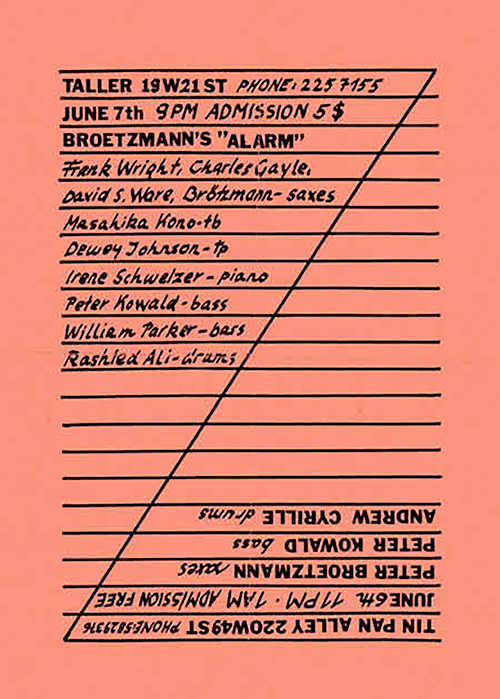 TALLER 19W21ST PHONE: 2257155
JUNE 7th 9PM ADMISSION 5$
BROETZMANN'S "ALARM"
Frank Wright, Charles Gayle,
David S. Ware, Brötzmann- saxes
Masahika Kono-tb
Dewey Johnson-tp
Irene Schweizer - piano
Peter Kowald - bass
William Parker - bass
Rashied Ali - drums
TIN PAN ALLEY 220W49ST PHONE:5829376
JUNE6th 11PM · 1AM ADMISSION FREE
PETER BROETZMANN saxes
PETER KOWALD bass
ANDREW CYRILLE drums